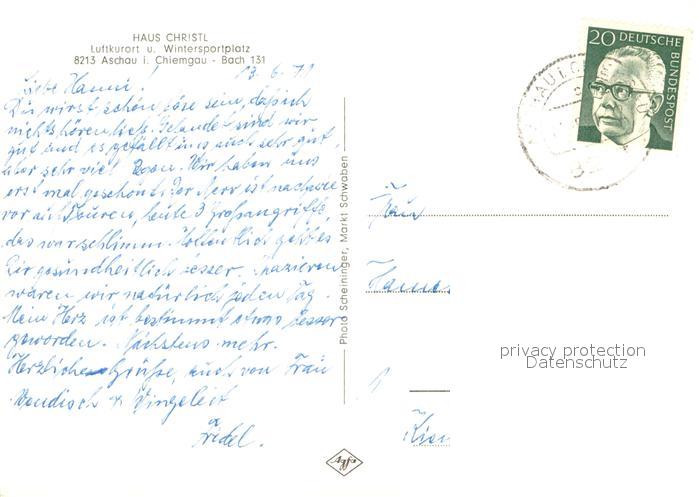 HAUS CHRISTL
Luftkurort u. Wintersportplatz
8213 Aschau i. Chiemgau - Bach 131
13. 6. 71
Liebe Hanni!
Du wirst schön böse sein, daß ich
nichts hören ließ. Gelandet sind wir
gut und es gefällt uns auch sehr gut,
aber sehr viel Regen. Wir haben uns
erst mal geschont. Der Nerv ist nach wie
vor auf Touren, heute 3 Großangriffe,
das war schlimm. Hoffentlich geht es
Dir gesundheitlich besser. Spazieren
waren wir natürlich jeden Tag.
Mein Herz ist bestimmt etwas besser
geworden. Nächstens mehr.
Herzliche Grüße, auch von Frau
Friedel.
Photo Scheininger, Markt Schwaben
20 DEUTSCHE
BUNDESPOST
Frau
privacy protection
Datenschutz
Agfa